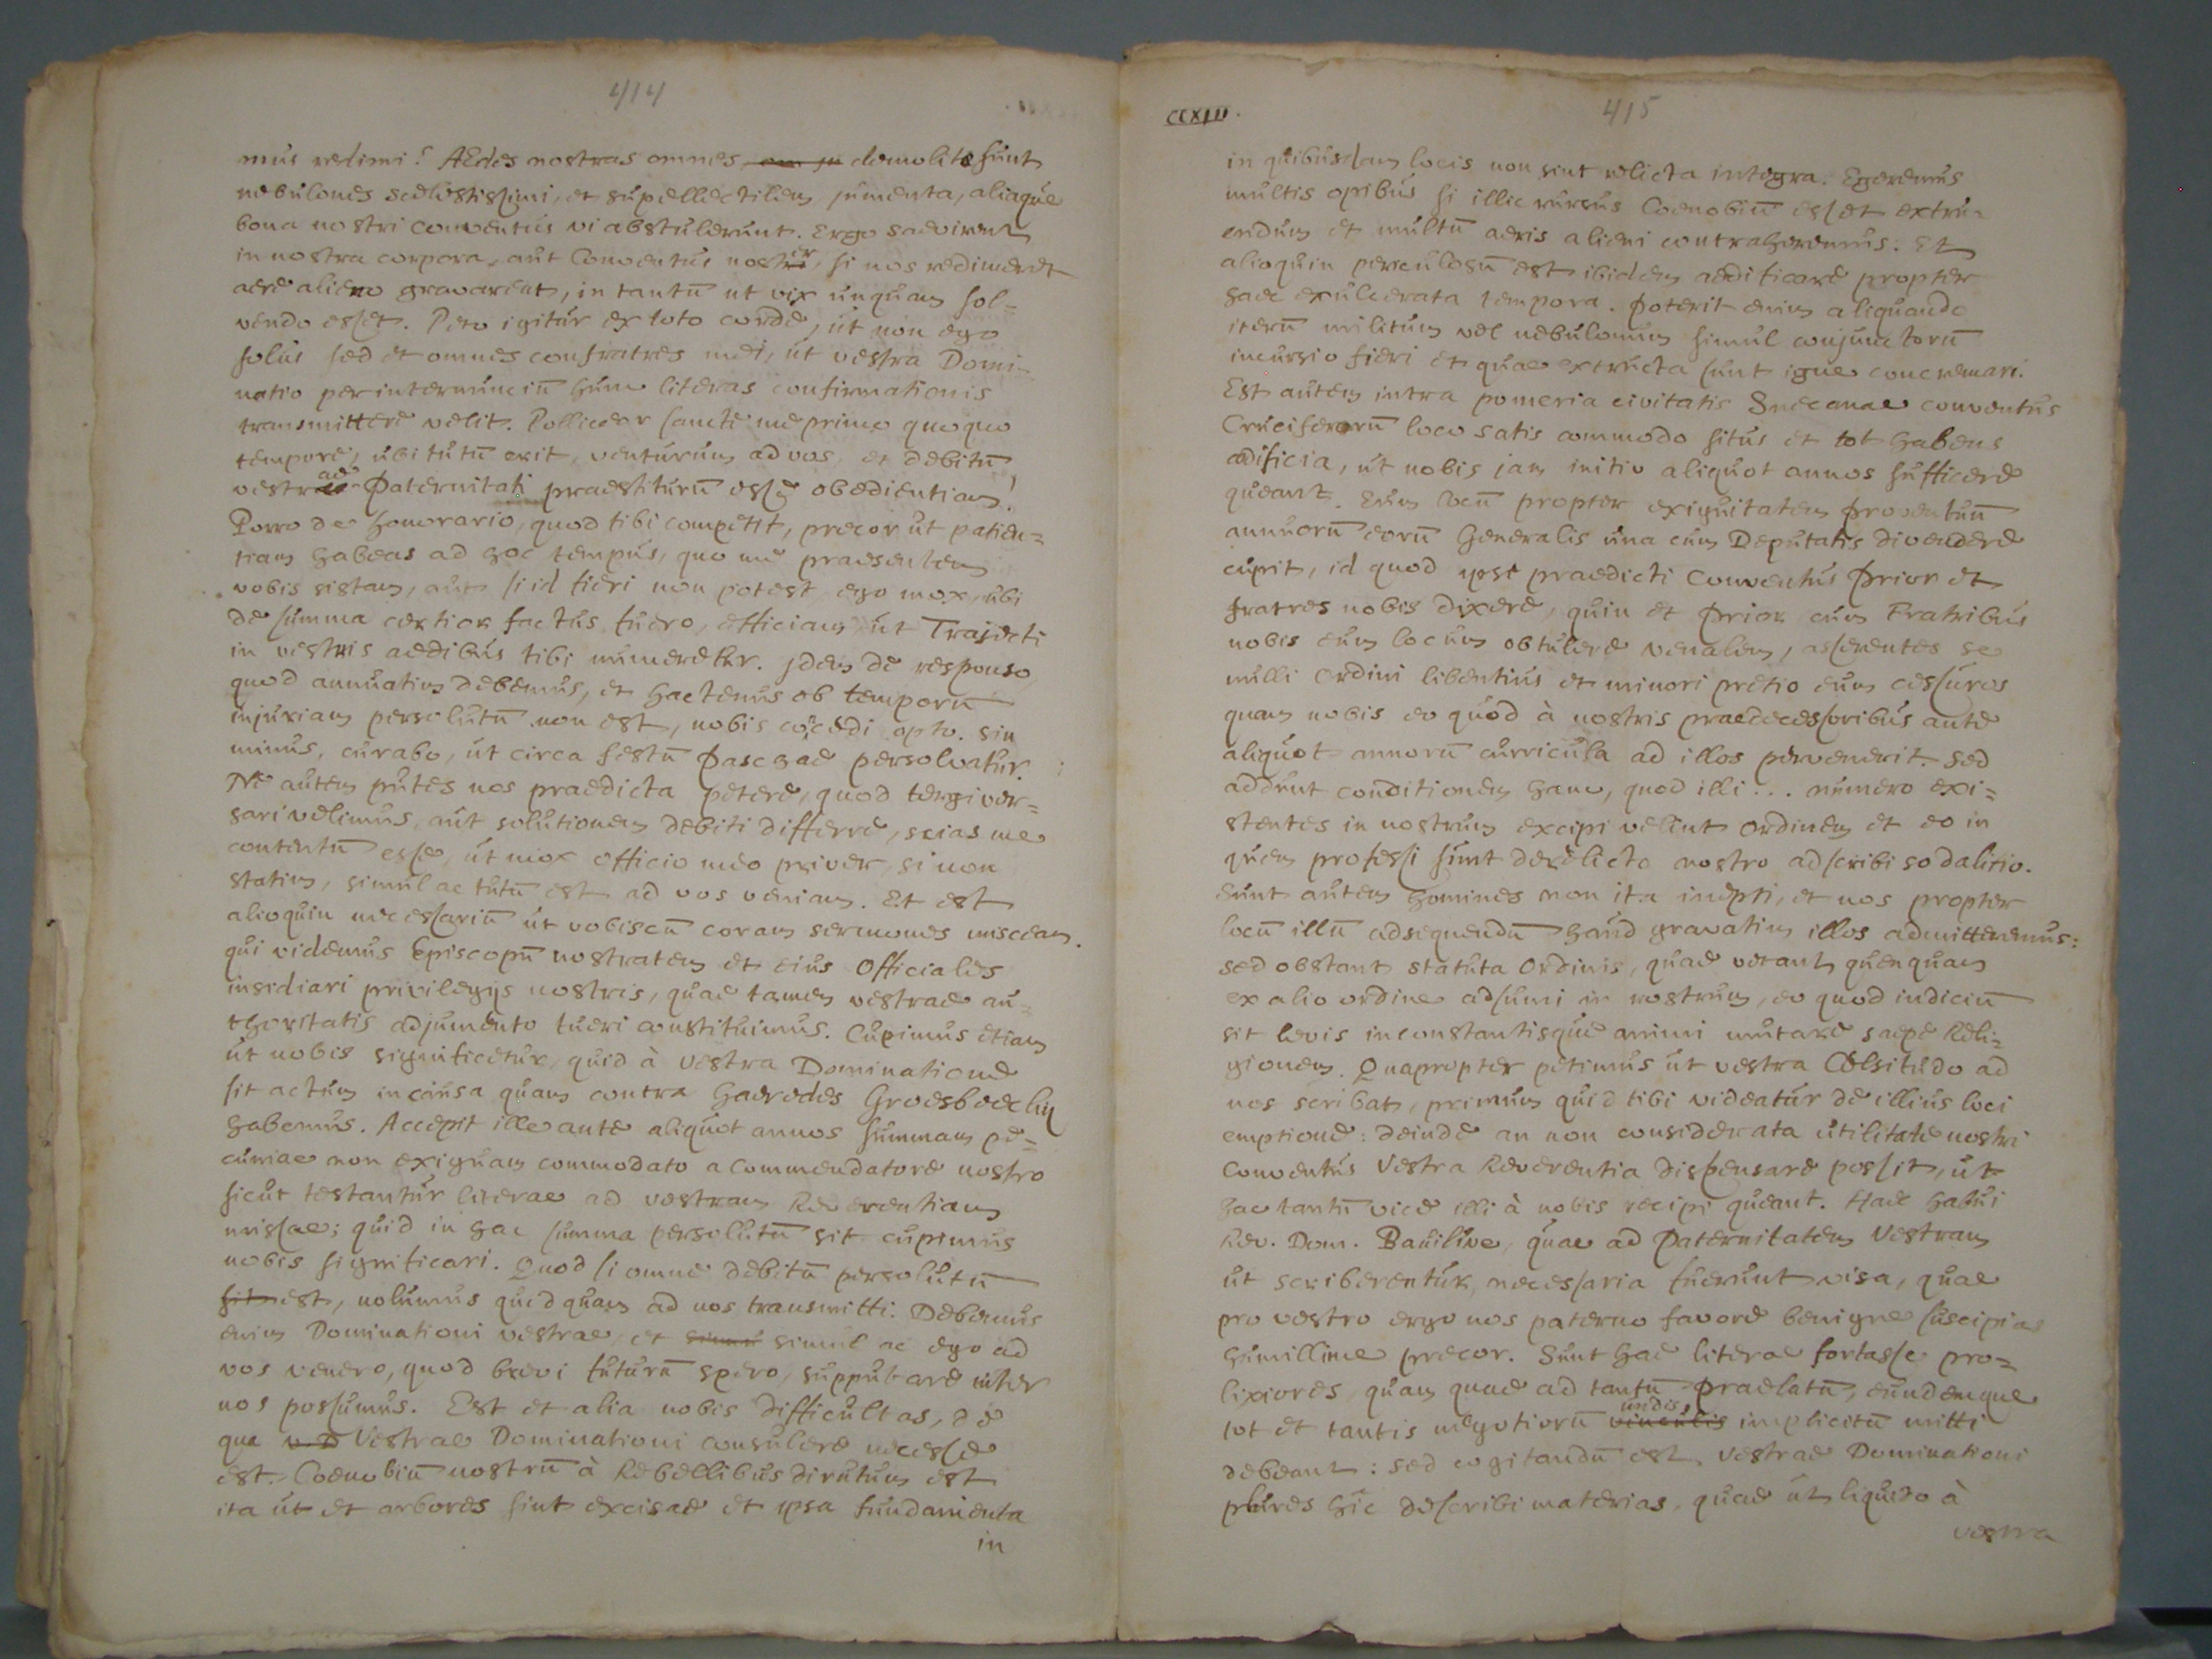 414
mus redimi? AEdes nostras omnes demolite sunt
nebulones scelestissimi, et supellectilem jumenta, aliaque
bona nostri conventus vi abstulerunt. Ergo saevirent
in nostra corpora, aut Conventus noster, si nos redimeret
aere alieno gravarent, in tantū ut vix unquam sol-
vendo esset. Peto igitur ex toto corde, ut non ego
solus sed et omnes confratres mei, ut vestra Domi-
natio per internunciū hunc literas confirmationis
transmittere velit. Polliceor sancte me primo quoquo
tempore, ubi tutū erit, venturum ad vos, et debitū
vestrae Paternitati praestiturū esse obedientiam!
Porro de honorario, quod tibi competit, precor ut patien=
tiam habeas ad hoc tempus, quo me praesentem
vobis sistam, aut si id fieri non potest, ego mox, ubi
de summa certior factus fuero, efficiam, ut Trajecti
in vestris aedibus tibi numeretur. Idem de responso,
quod annuatim debemus, et hactenus ob temporū
injuriam persolutū non est, nobis cōcedi opto. sin
minus, curabo, ut circa festū Paschae persolvatur.
Ne autem putes nos praedicta petere, quod tergiver=
sari velimus, aut solutionem debiti differre, scias me
contentū esse, ut mox officio meo priver, si non
statim, simul ac tutū est ad vos veniam. Et est
alioquin necessariū ut vobiscū coram sermones misceam.
qui videmus Episcopū nostratem et eius Officiales
insidiari privilegijs nostris, quae tamen vestrae au-
thoritatis adjumento tueri constituimus. Cupimus etiam
ut nobis significetur, quid à Vestra Dominatione
sit actum in causa quam contra haeredes Groesbeeckij
habemus. Accepit ille ante aliquot annos summam pe=
cuniae non exiguam commodato a Commendatore nostro
sicut testantur literae ad vestram Reverentiam
missae; quid in hac summa persolutū sit cupimus
nobis significari. Quod si omne debitū persolutū
sit est, nolumus quidquam ad nos transmitti. Debemus
enim Dominationi vestrae, et simul ac ego ad
vos venero, quod brevi futurū spero, supputare inter
nos possumus. Est et alia nobis difficultas, de
qua Vestrae Dominationi consulere necesse
est. Coenobiū nostrū à Rebellibus dirutum est
ita ut et arbores sint excisae et ipsa fundamenta
in
CCXIII.
415
in quibusdam locis non sint relicta integra. Egeremus
multis opibus si illic rursus Coenobiū esset extru-
endum et multū aeris alieni contraheremus. Et
alioquin periculosū est ibidem aedificare propter
haec exulcerata tempora. Poterit enim aliquando
iterū militum vel nebulonum simul conjunctorū
incursio fieri et quae extructa sunt igne concremari.
Est autem intra pomeria civitatis Snecanae conventus
Cruciferorū loco satis commodo situs et tot habens
aedificia, ut nobis jam initio aliquot annos sufficere
queant. Eum locū propter exiguitatem proventuū
annuorū eorū Generalis una cum Deputatis divendere
cupit, id quod ipse praedicti Conventus Prior et
fratres nobis dixere, quin et Prior cum Fratribus
nobis eum locum obtulere venalem, asserentes se
nulli Ordini libentius et minori pretio eum cessuros
quam nobis eo quod à nostris praedecessoribus ante
aliquot annorū curricula ad illos pervenerit. Sed
addunt conditionem hanc, quod illi . . . numero exi=
stentes in nostrum excipi velint Ordinem et eo in
quem professi sunt derelicto nostro adscribi sodalitio.
Sunt autem homines non ita inepti, et nos propter
locū illū adsequendū haud gravatim illos admitteremus:
sed obstant statuta Ordinis, quae vetant quenquam
ex alio ordine adsumi in nostrum, eo quod indiciū
sit levis inconstantisque animi mutare saepe Reli-
gionem. Quapropter petimus ut vestra Celsitudo ad
nos scribat, primum quid tibi videatur de illius loci
emptione: deinde an non considerata utilitate nostri
Conventus Vestra Reverentia dispensare possit, ut
hac tantū vice illi à nobis recipi queant. Haec habui
Rev. Dom. Bauiliue, quae ad Paternitatem Vestram
ut scriberentur, necessaria fuerunt visa, quae
pro vestro ergo nos paterno favore benigne suscipias
humillime precor. Sunt hae literae fortasse pro=
lixiores, quam quae ad tantū Praelatū, eundemque
tot et tantis negotiorū vinculis undis, implicitū mitti
debeant: sed cogitandū est, vestrae Dominationi
plures hic describi materias, quae ut liquido à
vestra